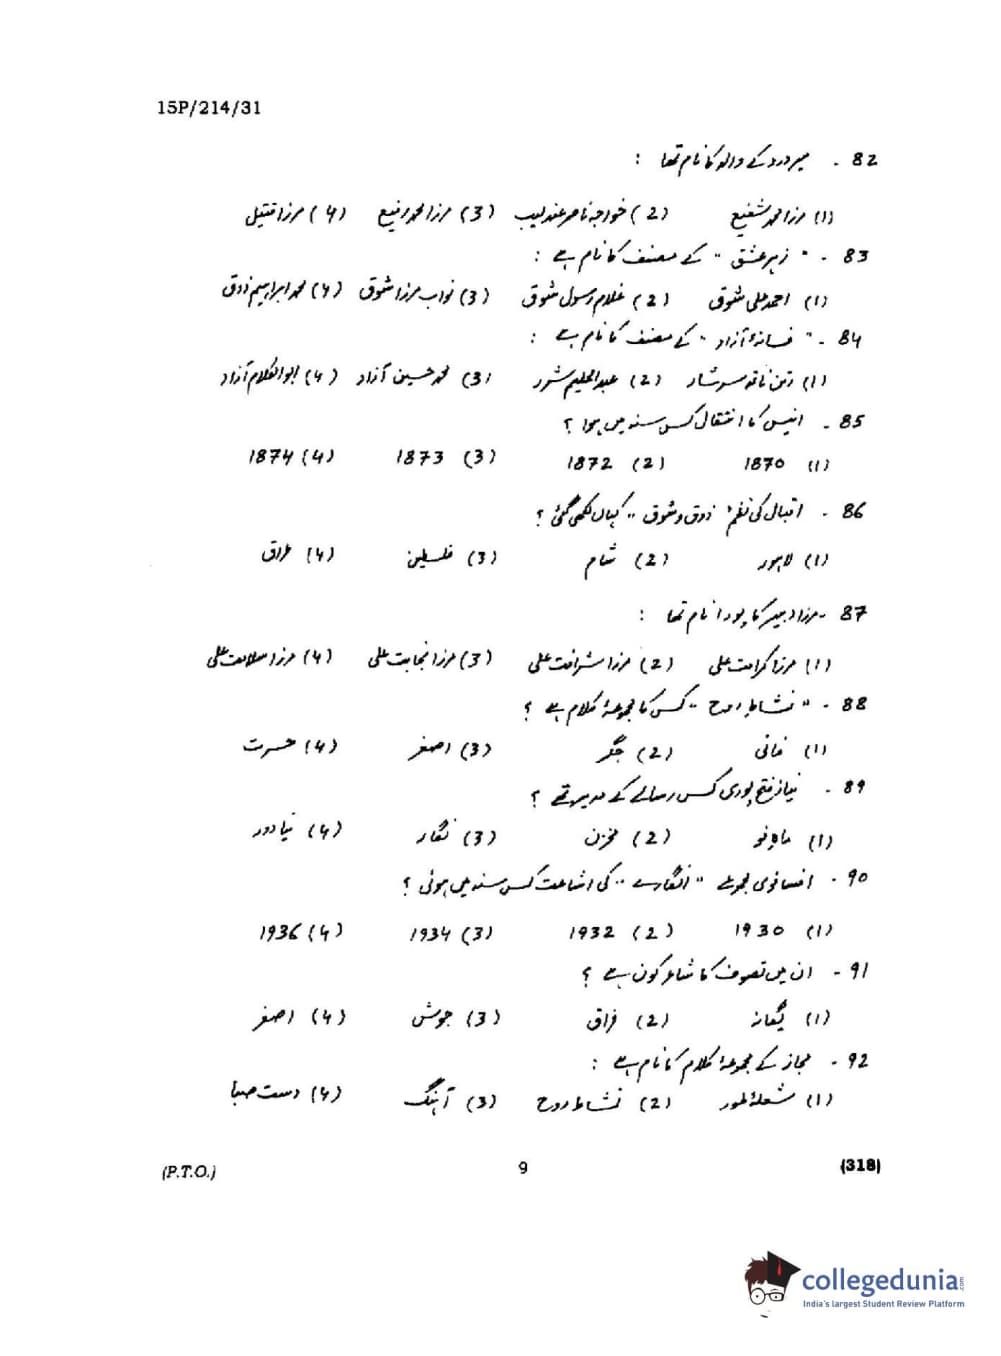 15P/214/31
82 - میر درد کے والد کا نام تھا :
(1) مرزا محمد شفیع (2) خواجہ ناصر عندلیب (3) مرزا محمد رفیع (4) مرزا قتیل
83 - " زہر عشق " کے مصنف کا نام ہے :
(1) احمد علی شوق (2) غلام رسول شوق (3) نواب مرزا شوق (4) محمد ابراہیم ذوق
84 - " فسانۂ آزاد " کے مصنف کا نام ہے :
(1) رتن ناتھ سرشار (2) عبدالحلیم شرر (3) محمد حسین آزاد (4) ابوالکلام آزاد
85 - انیس کا انتقال کس سنہ میں ہوا ؟
(1) 1870 (2) 1872 (3) 1873 (4) 1874
86 - اقبال کی نظم " ذوق و شوق " کہاں لکھی گئی ؟
(1) لاہور (2) شام (3) فلسطین (4) عراق
87 - مرزا دبیر کا پورا نام تھا :
(1) مرزا کرامت علی (2) مرزا شرافت علی (3) مرزا نجابت علی (4) مرزا سلامت علی
88 - " نشاط روح " کس کا مجموعۂ کلام ہے ؟
(1) فانی (2) جگر (3) اصغر (4) حسرت
89 - نیاز فتح پوری کس رسالے کے مدیر تھے ؟
(1) ماہ نو (2) مخزن (3) نگار (4) نیا دور
90 - افسانوی مجموعے " انگارے " کی اشاعت کس سنہ میں ہوئی ؟
(1) 1930 (2) 1932 (3) 1934 (4) 1936
91 - ان میں تصوف کا شاعر کون ہے ؟
(1) یگانہ (2) فراق (3) جوش (4) اصغر
92 - مجاز کے مجموعۂ کلام کا نام ہے :
(1) شعلۂ طور (2) نشاط روح (3) آہنگ (4) دست صبا
(P.T.O.) 9 (318)
collegedunia.com
India's largest Student Review Platform